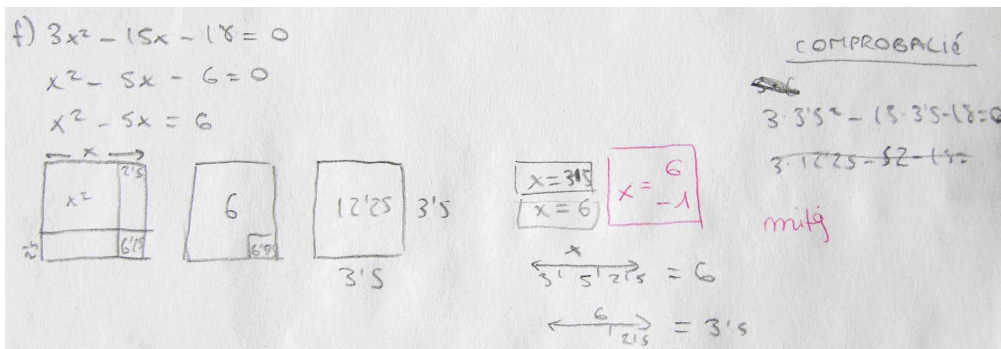 f) 3x² - 15x - 18 = 0
x² - 5x - 6 = 0
x² - 5x = 6
x
x²
2'5
2'5
6'25
6
6'25
12'25
3'5
3'5
x = 3'5
x = 6
x = 6
-1
x
3'5 2'5 = 6
6
2'5 = 3'5
COMPROBACIÓ
3·3'5² - 15·3'5 - 18 = 0
3·12'25 - 52 - 18 =
mitg